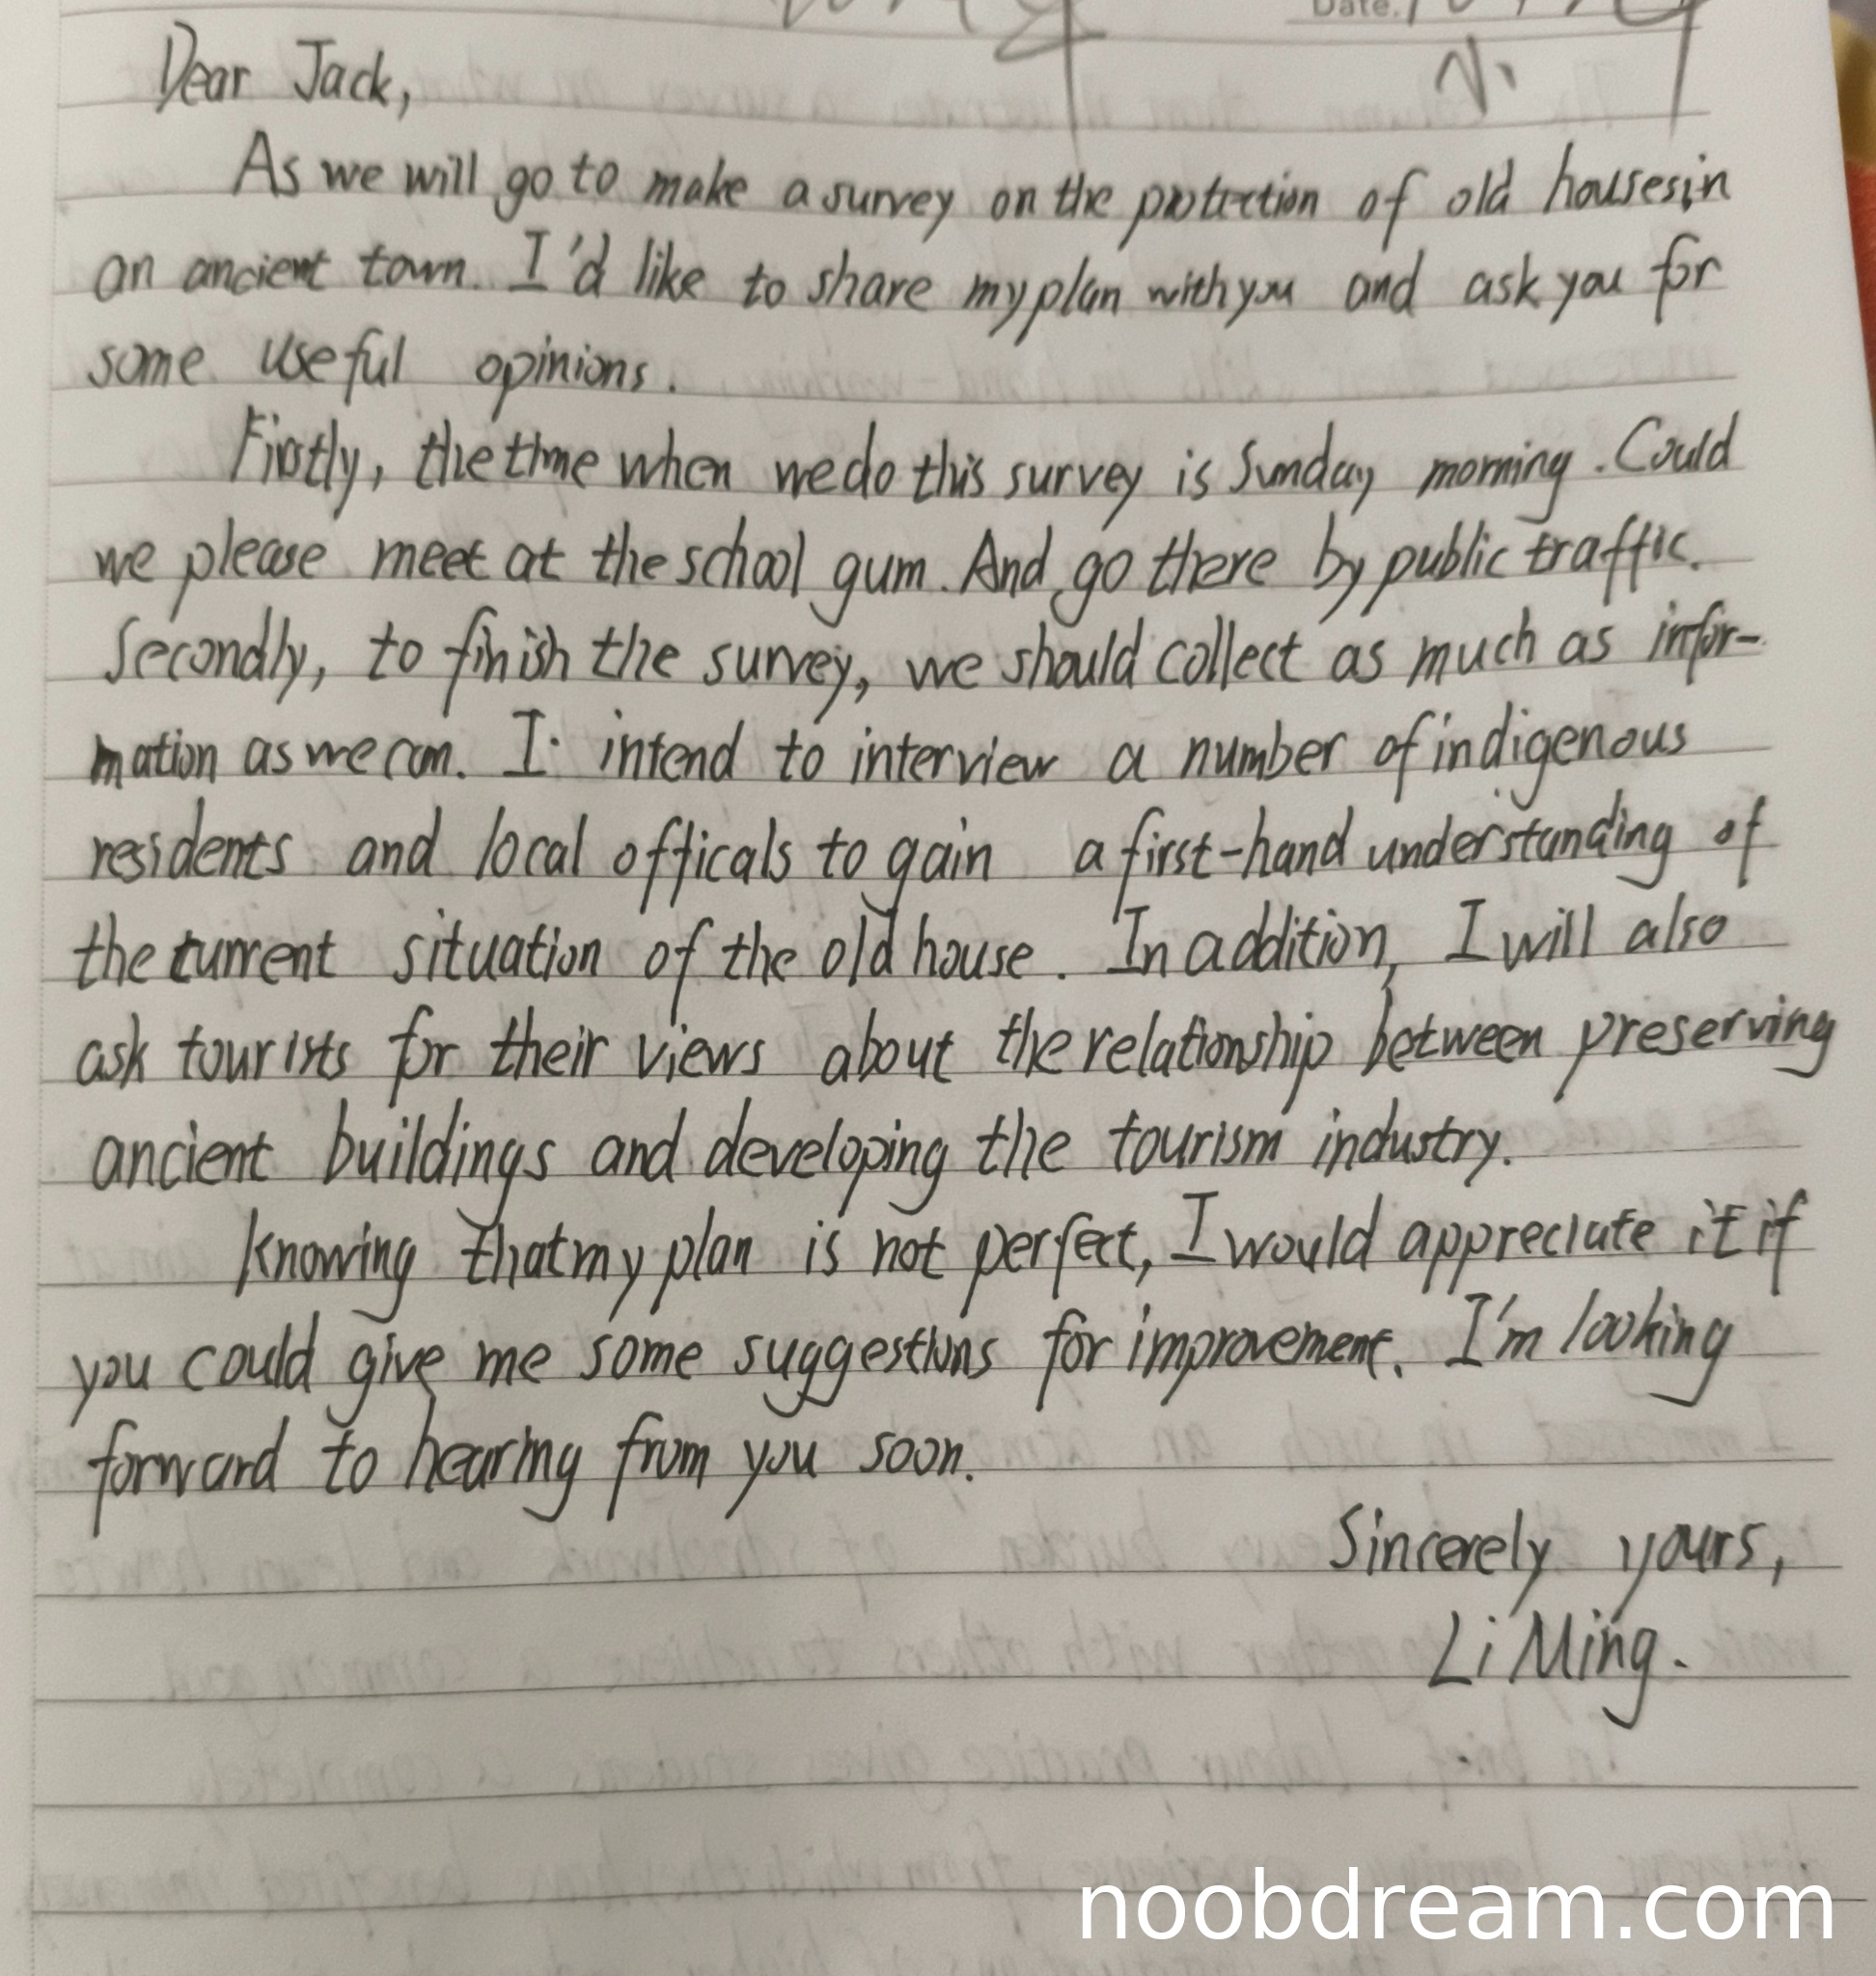 Date.
Dear Jack,
As we will go to make a survey on the protection of old houses in
an ancient town. I'd like to share my plan with you and ask you for
some useful opinions.
Firstly, the time when we do this survey is Sunday morning. Could
we please meet at the school gum. And go there by public traffic.
Secondly, to finish the survey, we should collect as much as infor-
mation as we can. I intend to interview a number of indigenous
residents and local officals to gain a first-hand understanding of
the current situation of the old house. In addition, I will also
ask tourists for their views about the relationship between preserving
ancient buildings and developing the tourism industry.
Knowing that my plan is not perfect, I would appreciate it if
you could give me some suggestions for improvement. I'm looking
forward to hearing from you soon.
Sincerely yours,
Li Ming.
noobdream.com